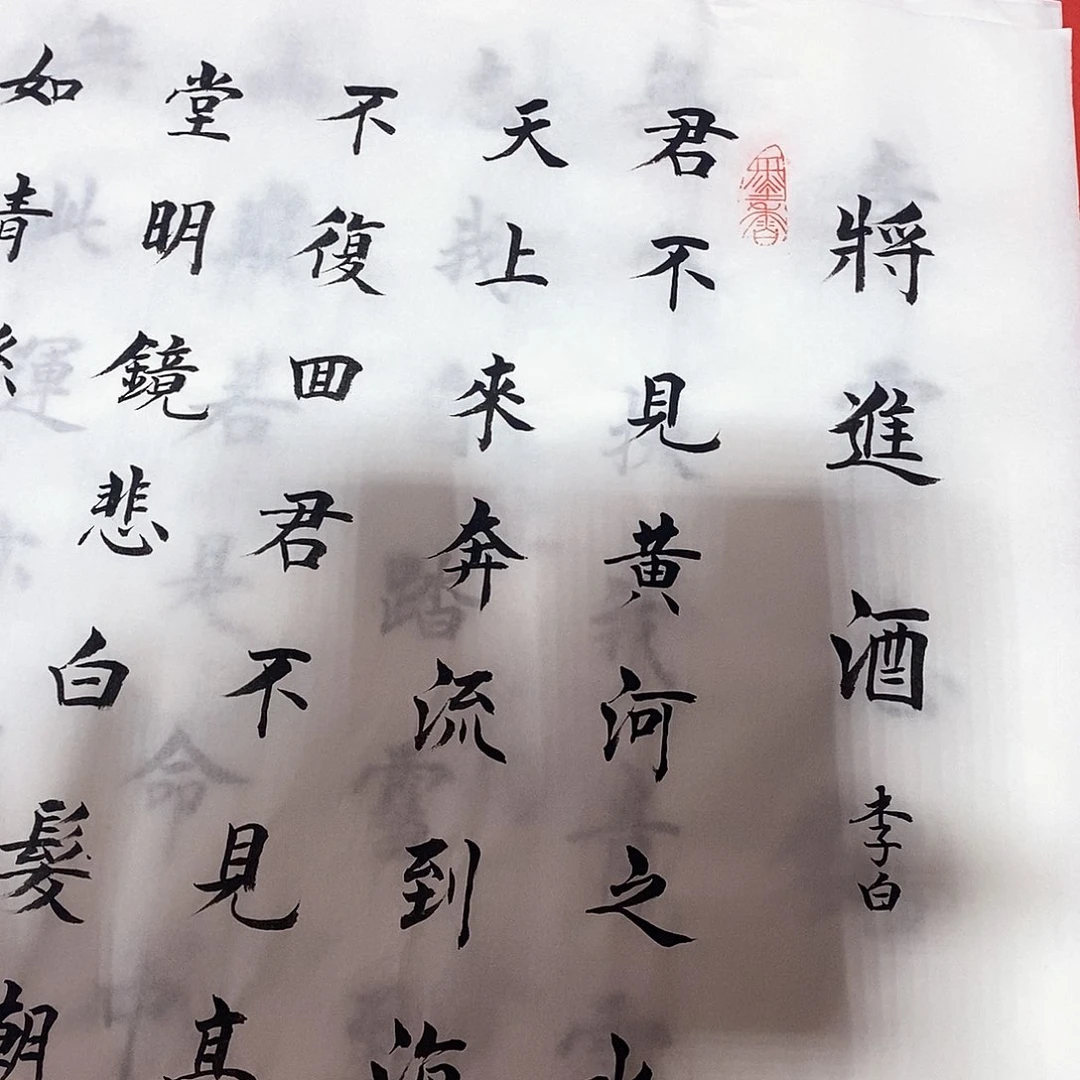 將進酒 李白
君不見黃河之水
天上來奔流到海
不復回君不見高
堂明鏡悲白髮朝
如青絲